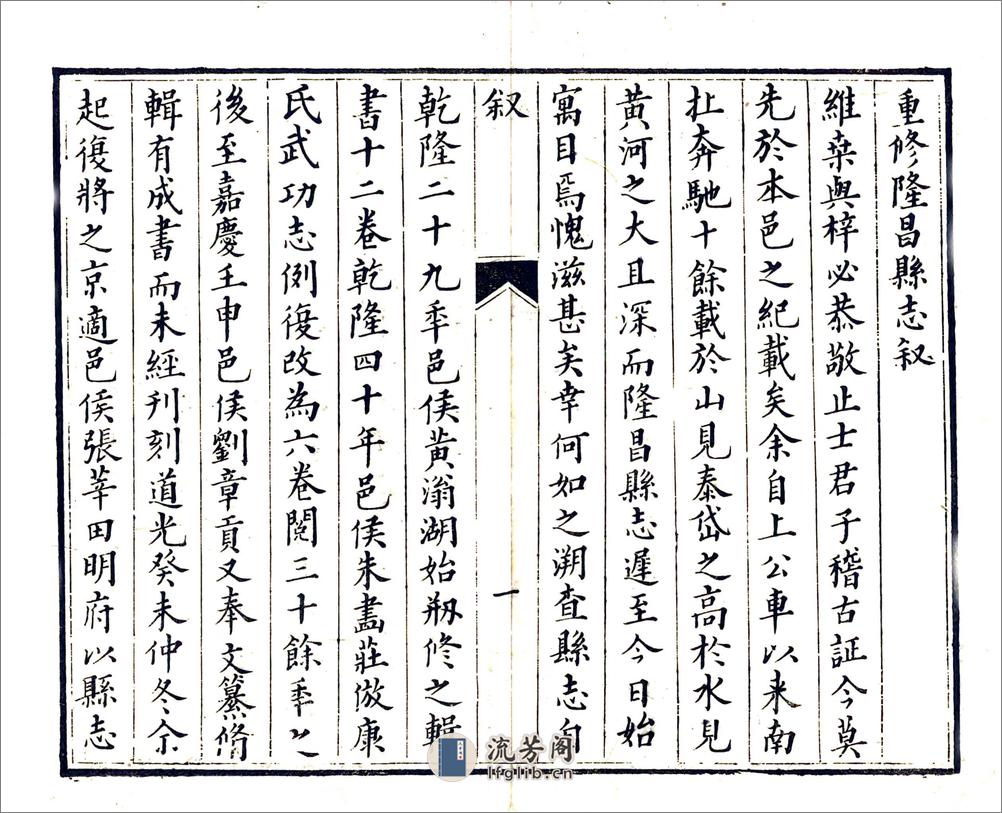 重修隆昌縣志叙
維桒與梓必恭敬止士君子稽古証今莫
先於本邑之紀載矣余自上公車以来南
北奔馳十餘載於山見泰岱之高於水見
黄河之大且深而隆昌縣志遲至今日始
寓目焉愧滋甚矣幸何如之溯查縣志自
叙
一
乾隆二十九秊邑侯黄滃湖始剏修之輯
書十二卷乾隆四十年邑侯朱畵莊倣康
氏武功志例復改為六卷閲三十餘秊之
後至嘉慶壬申邑侯劉章貢又奉文纂脩
輯有成書而未經刋刻道光癸未仲冬余
起復將之京適邑侯張莘田明府以縣志
流芳阁
lfglib.cn